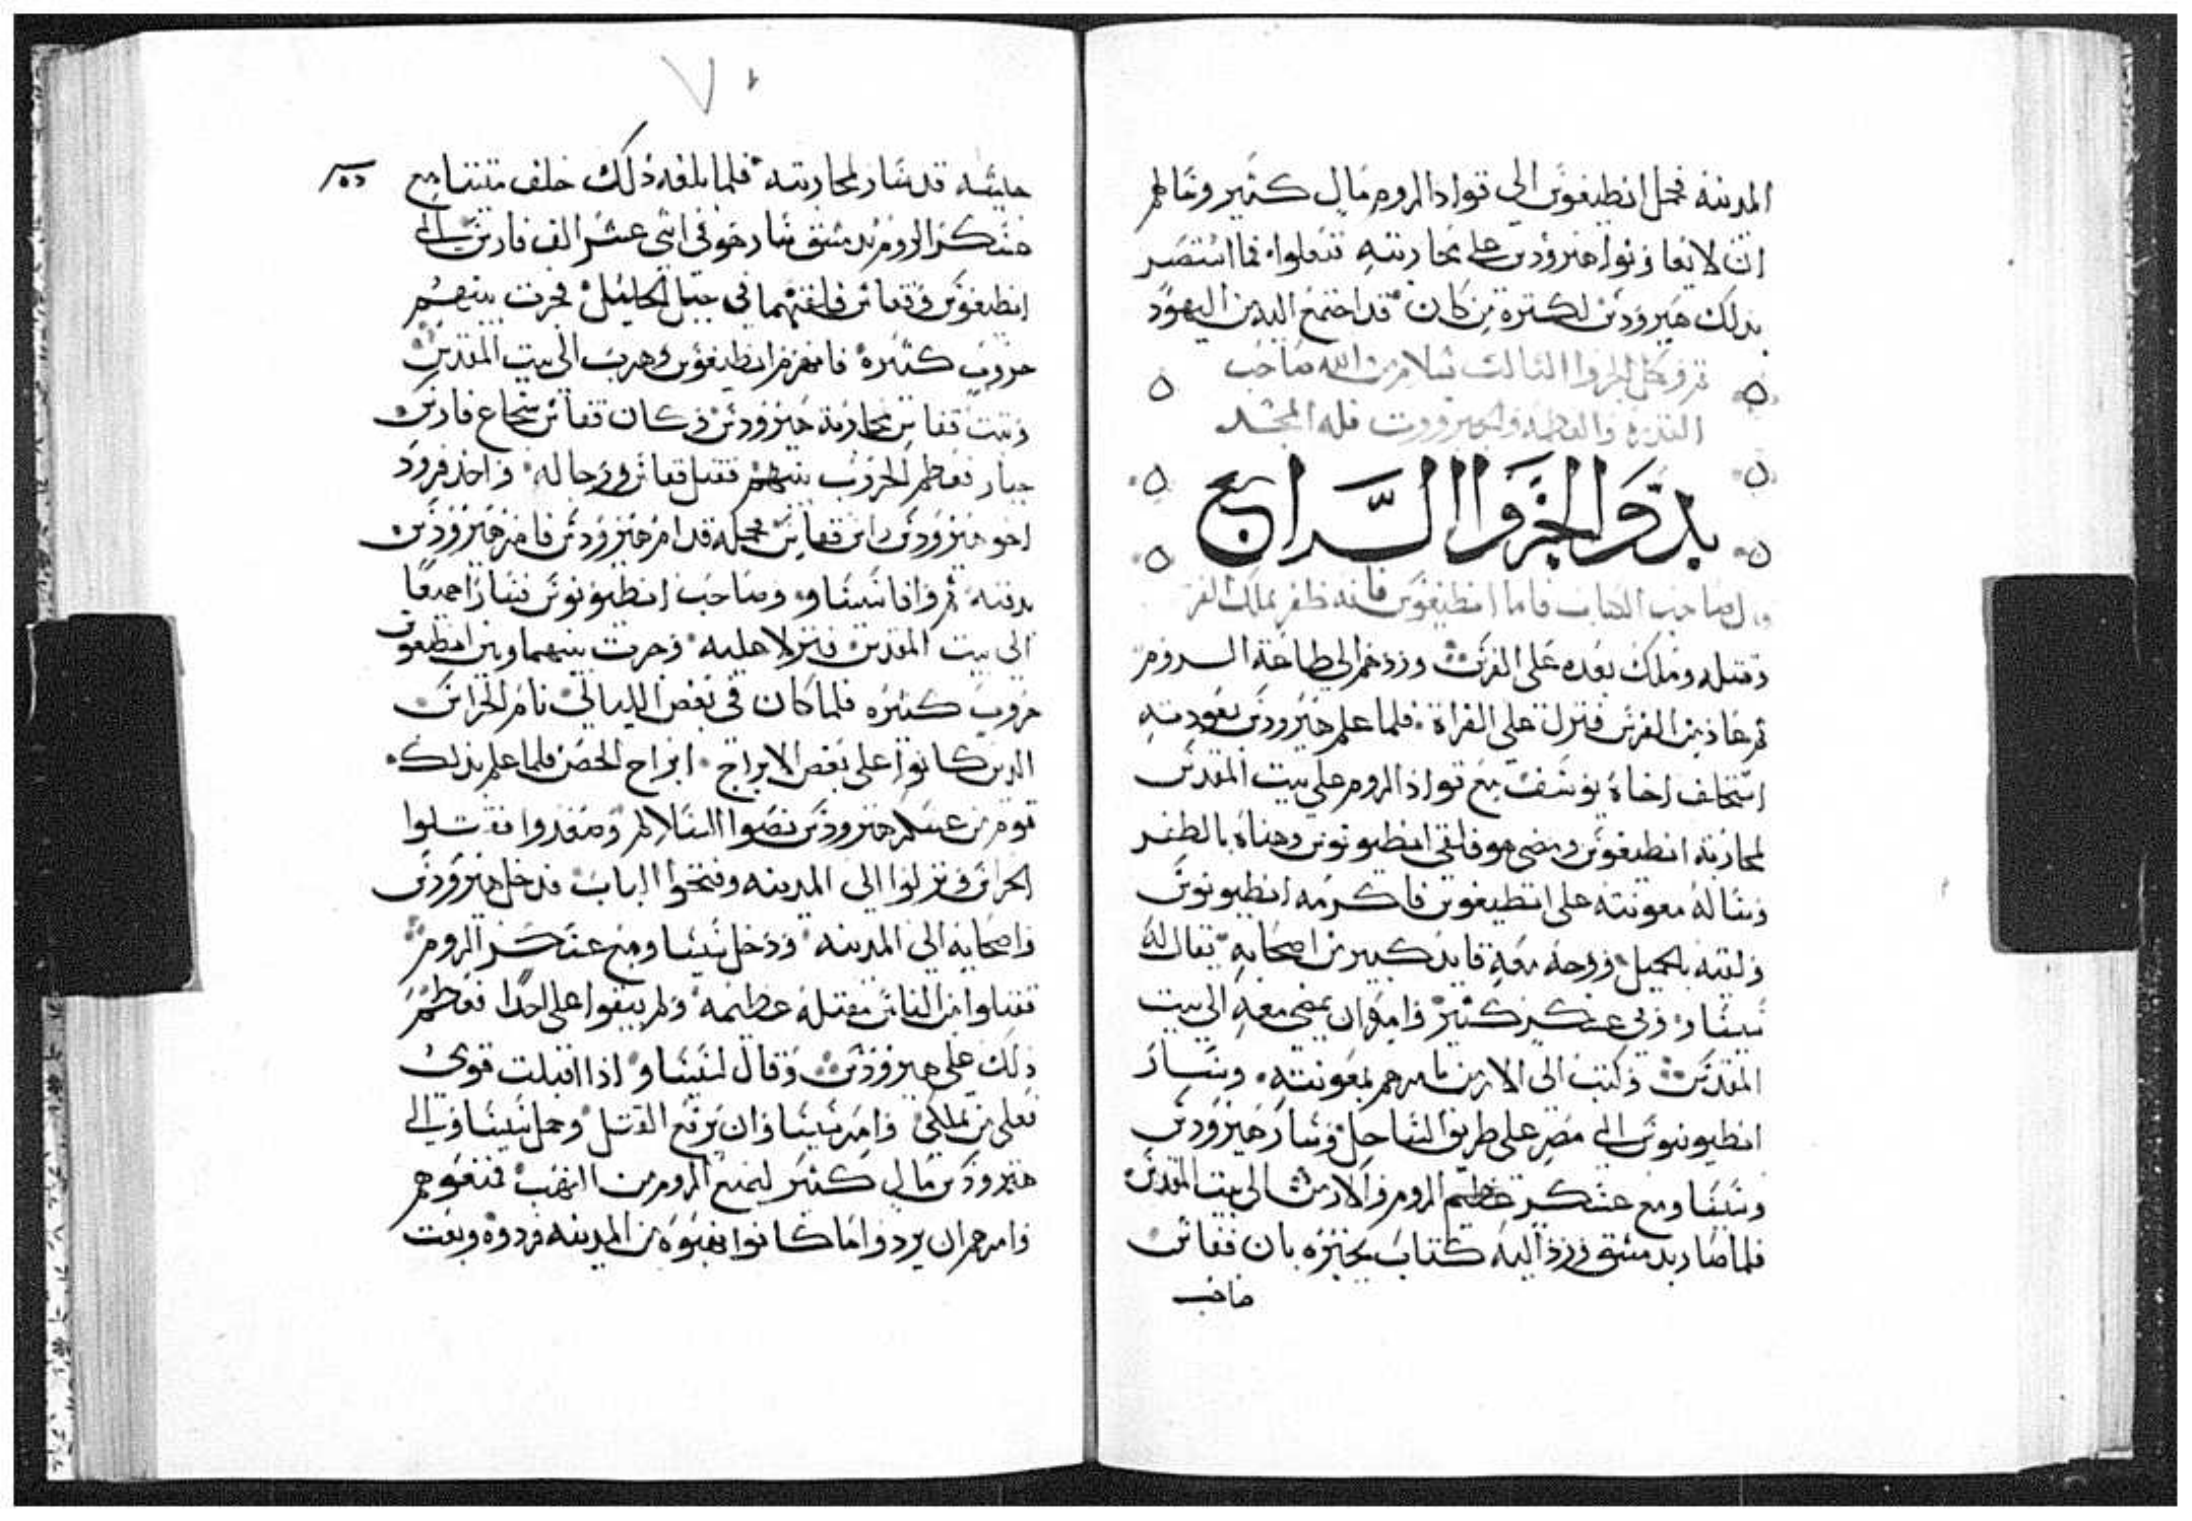 المدينه فحمل انطيغوس الى قواد الروم مال كثير وسالهم
ان لا يعاونوا هيرودس على محاربته ففعلوا فما استضر
بدلك هيرودس لكثرة من كان قد اجتمع اليه من اليهود
تم وكمل الجزوا الثالث بسلام من الله صاحب
القدره والعظمه والجبرووت فله المجد
بدوا الجزوا الرابع
قال صاحب الكتاب فاما انطيغوس فانه ظفر بملك الفرس
وقتله وملك بعده على الفرس وردهم الى طاعة الروم
ثم عاد من الفرس فنزل على الفراة فلما علم هيرودس بعودته
استخلف اخاه يوسف مع قواد الروم على بيت المقدس
لمحاربة انطيغوس ومضى هو فلقي انطيونوس وهناه بالظفر
وساله معونته على انطيغوس فاكرمه انطيونوس
ولقيه بالجميل ووجه معه قايد كبير من اصحابه يقال له
سيساو وفي عسكر كثير وامره ان يمضي معه الى بيت
المقدس وكتب الى الارمن يامرهم بمعونته وسار
انطيونيوس الى مصر على طريق الساحل وسار هيرودس
وسيساو مع عسكر عظيم الروم والارمن الى بيت المقدس
فلما صار بدمشق ورد اليه كتاب يخبره بان ققاس
صاحب
٧٠
٥٥
جيشه قد سار لمحاربته فلما بلغه ذلك خلف سيسا مع
عسكر الروم بدمشق وسار هو في اثنى عشر الف فارس الى
انطيغوس وققاس فلقيهما في جبل الجليل فجرت بينهم
حروب كثيره فانهزم انطيغوس وهرب الى بيت المقدس
وثبت ققاس لمحاربة هيرودس وكان ققاس شجاع فارس
جبار فعظم الحروب بينهم فقتل ققاس ورجاله واخد فرود
اخو هيرودس راس ققاس فحمله قدام هيرودس فامر هيرودس
بدفنه ثم وافا سيساو وصاحب انطيونوس فسارا جميعا
الى بيت المقدس فنزلا عليه وجرت بينهما وبين انطيغوس
حروب كثيره فلما كان في بعض الليالي نام الحراس
الدين كانوا على بعض الابراج ابراج الحصن فلما علم بذلك
قوم من عسكر هيرودس نصبوا السلالم وصعدوا فقتلوا
الحراس ونزلوا الى المدينه وفتحوا الباب فدخل هيرودس
واصحابه الى المدينه ودخل سيسا ومع عسكر الروم
فقتلوا من الناس مقتلة عظيمه ولم يبقوا على احدا فعظم
ذلك على هيرودس وقال لسيساو اذا اقبلت قومي
فعلى من تملكني وامر سيساو ان يرفع القتل وحمل سيساو الى
هيرودس مال كثير ليمنع الروم من النهب فمنعوهم
وامرهم ان يردوا ما كانوا نهبوه من المدينه فردوه وبعت